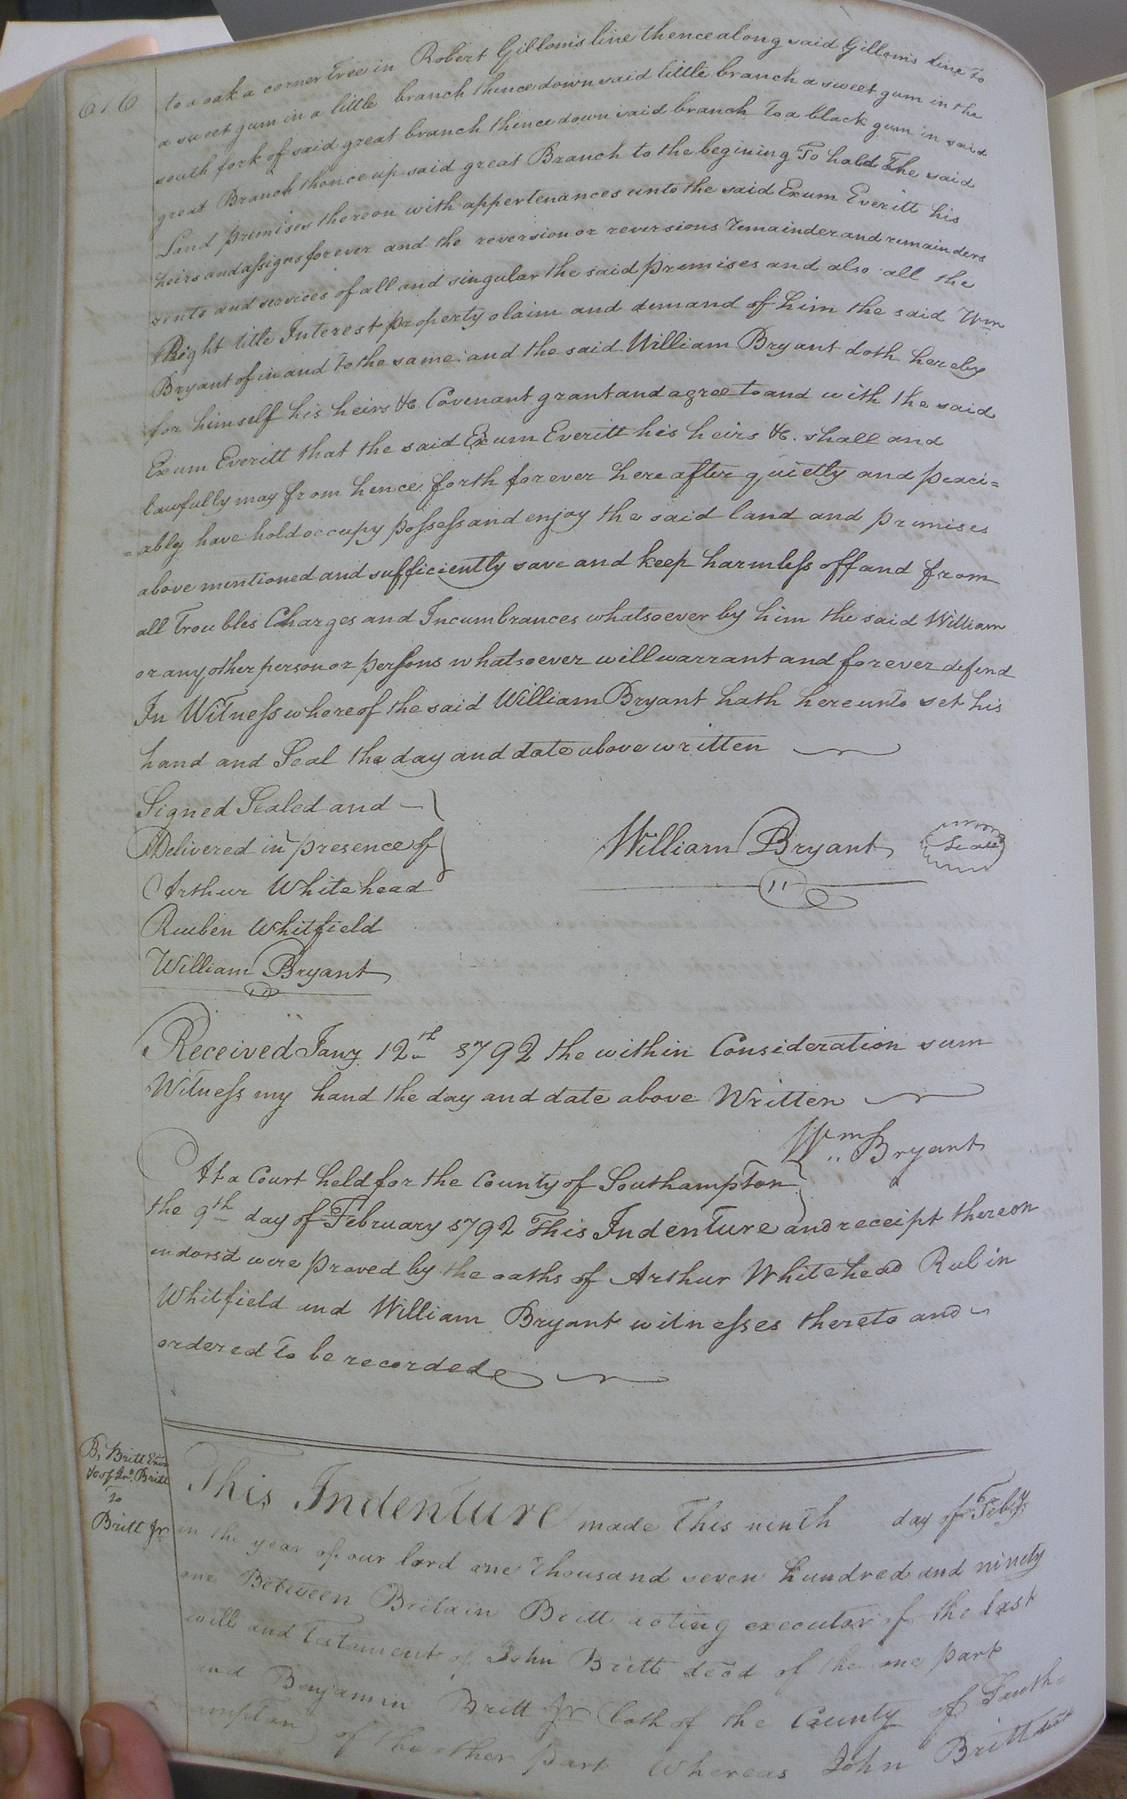 616
to a oak a corner tree in Robert Gilloms line thence along said Gilloms line to
a sweet gum in a little branch thence down said little branch a sweet gum in the
south fork of said great branch thence down said branch to a black gum in said
great Branch thence up said great Branch to the begining To hold The said
Land premises thereon with appertenances unto the said Exum Everitt his
heirs and assigns forever and the reversion or reversions remainder and remainders
rents and services of all and singular the said premises and also all the
Right title Interest property claim and demand of him the said Wm
Bryant of in and to the same and the said William Bryant doth hereby
for himself his heirs &c. Covenant grant and agree to and with the said
Exum Everitt that the said Exum Everitt his heirs &c. shall and
lawfully may from hence forth forever hereafter quietly and peaci=
=ably have hold occupy possess and enjoy the said land and premises
above mentioned and sufficiently save and keep harmless off and from
all Troubles Charges and Incumbrances whatsoever by him the said William
or any other person or persons whatsoever will warrant and forever defend
In Witness whereof the said William Bryant hath hereunto set his
hand and Seal the day and date above written
Signed Sealed and
Delivered in presence of
William Bryant Seal
Arthur Whitehead
Reuben Whitfield
William Bryant
Received Jany 12th 1792 the within Consideration sum
Witness my hand the day and date above Written
Wm Bryant
At a Court held for the County of Southampton
the 9th day of February 1792 This Indenture and receipt thereon
endorsd were proved by the oaths of Arthur Whitehead Rubin
Whitfield and William Bryant witnesses thereto and
ordered to be recorded
B, Britt Exor
of Jno. Britt
To
Britt Jr
This Indenture made This ninth day of Feby.
in the year of our lord one thousand seven hundred and ninety
one Between Britain Britt acting executor of the last
will and testament of John Britt decd of the one part
and Benjamin Britt Jr both of the County of South=
ampton of the other part Whereas John Britt